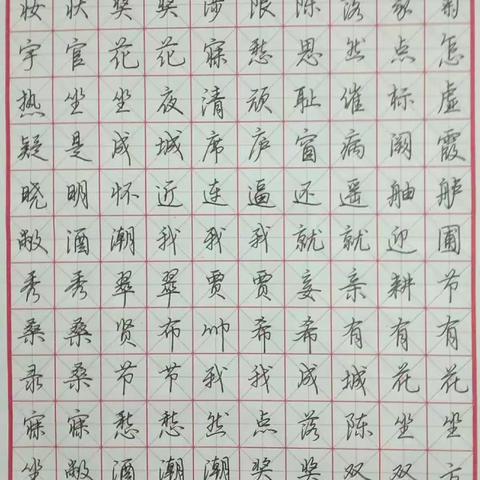 妆 状 奖 奖 莎 限 陈 落 家 菊
宇 官 花 花 寐 愁 思 然 点 怎
热 坐 坐 夜 清 顽 耻 催 标 虚
疑 是 成 城 席 庐 窗 病 阙 霞
晓 明 怀 近 连 逼 还 遥 舳 舻
敞 酒 潮 我 我 我 就 就 迎 圃
秀 秀 翠 翠 贾 贾 妾 亲 耕 节
桑 桑 贤 布 帅 希 希 有 有 有
录 桑 节 节 我 我 成 城 花 花
寐 寐 愁 愁 然 点 落 陈 坐 坐
坐 敞 酒 潮 潮 奖 奖 双 双